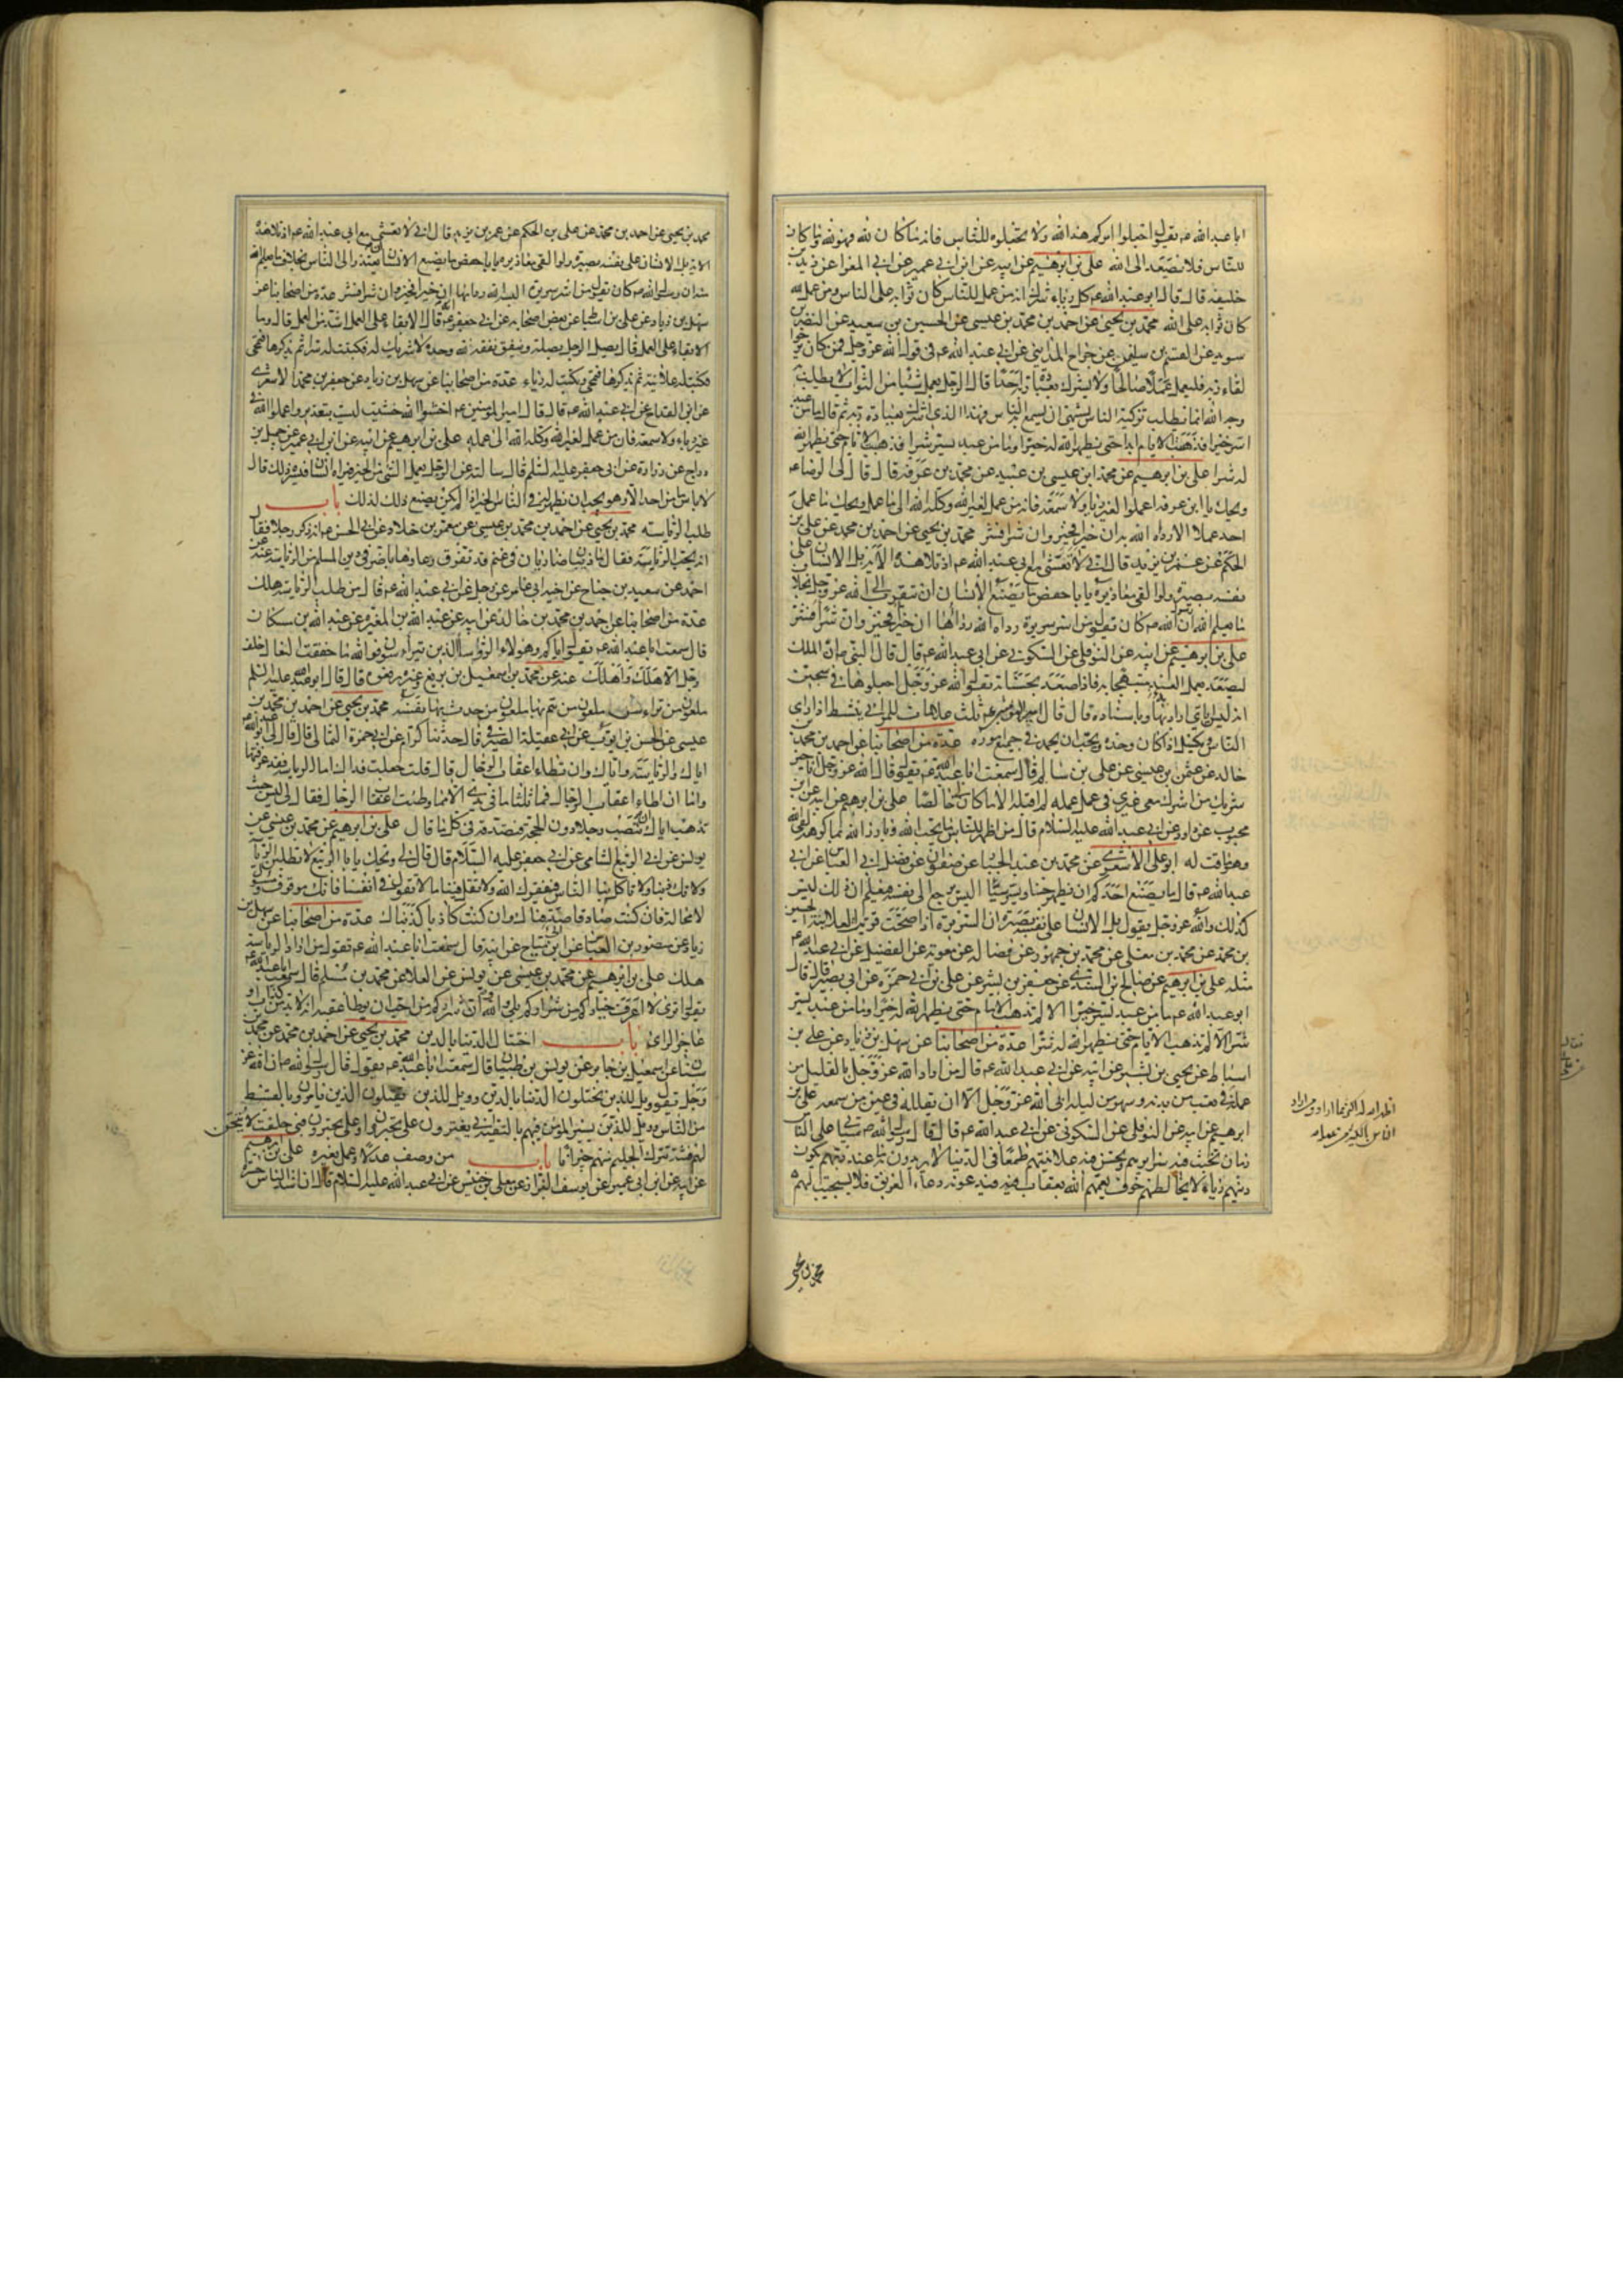 ابا عبدالله ع يقول اجعلوا امركم هذا لله ولا تجعلوه للناس فانه ما كان لله فهو لله وما كان
للناس فلا يصعد الى الله علي بن ابرهيم عن ابيه عن ابن ابي عمير عن ابي المغرا عن يزيد بن
خليفه قال قال ابو عبدالله ع كل رياء شرك انه من عمل للناس كان ثوابه على الناس ومن عمل لله
كان ثوابه على الله محمد بن يحيى عن احمد بن محمد بن عيسى عن الحسين بن سعيد عن النضر بن
سويد عن القسم بن سليمن عن جراح المدايني عن ابي عبدالله ع في قول الله عز وجل فمن كان يرجوا
لقاء ربه فليعمل عملا صالحا ولا يشرك بعبادة ربه احدا قال الرجل يعمل شيئا من الثواب لا يطلب به
وجه الله انما يطلب تزكية الناس يشتهي ان يسمع به الناس فهذا الذي اشرك بعبادة ربه ثم قال ما من عبد
اسر خيرا فذهبت الايام ابدا حتى يظهر الله له خيرا وما من عبد يسر شرا فذهبت الايام حتى يظهر الله
له شرا علي بن ابرهيم عن محمد ابن عيسى بن عبيد عن محمد بن عرفة قال قال لي الرضا ع
ويحك يا ابن عرفه اعملوا لغير رياء ولا سمعة فانه من عمل لغير الله وكله الله الى ما عمل ويحك ما عمل
احد عملا الا رداه الله به ان خيرا فخير وان شرا فشر محمد بن يحيى عن احمد بن محمد عن علي بن
الحكم عن عمر بن يزيد قال اني لا تعشى مع ابي عبدالله ع اذ تلا هذه الاية بل الانسان على
نفسه بصيرة ولو القى معاذيره يا با حفص ما يصنع الانسان ان يتقرب الى الله عز وجل بخلاف
ما يعلم الله ان رسول الله ص كان يقول من اسر سريرة رداه الله رداها ان خيرا فخير وان شرا فشر
علي بن ابرهيم عن ابيه عن النوفلي عن السكوني عن ابي عبدالله ع قال قال النبي ص ان الملك
ليصعد بعمل العبد مبتهجا به فاذا صعد بحسناته يقول الله عز وجل اجعلوها في سجين
انه ليس اياي اراد بها وباسناده قال قال امير المؤمنين ع ثلث علامات للمرائي ينشط اذا راى
الناس ويكسل اذا كان وحده ويحب ان يحمد في جميع اموره عدة من اصحابنا عن احمد بن محمد بن
خالد عن عثمن بن عيسى عن علي بن سالم قال سمعت ابا عبدالله ع يقول قال الله عز وجل انا خير
شريك من اشرك معي غيري في عمل عمله لم اقبله الا ما كان لي خالصا علي بن ابرهيم عن ابيه عن ابن
محبوب عن داود عن ابي عبدالله عليه السلام قال من اظهر للناس ما يحب الله وبارز الله بما كرهه لقي الله
وهو ماقت له ابو علي الاشعري عن محمد بن عبد الجبار عن صفوان عن فضل ابي العباس عن ابي
عبدالله ع قال ما يصنع احدكم ان يظهر حسنا ويسر سيئا اليس يرجع الى نفسه فيعلم ان ذلك ليس
كذلك والله عز وجل يقول بل الانسان على نفسه بصيرة ان السريرة اذا صحت قويت العلانية الحسين
بن محمد عن محمد بن معلى عن محمد بن جمهور عن فضاله عن معوية عن الفضيل عن ابي عبدالله ع
مثله علي بن ابرهيم عن صالح بن السندي عن جعفر بن بشير عن علي بن ابي حمزة عن ابي بصير قال قال
ابو عبدالله ع ما من عبد يسر خيرا الا لم تذهب الايام حتى يظهر الله له خيرا وما من عبد يسر
شرا الا لم تذهب الايام حتى يظهر الله له شرا عدة من اصحابنا عن سهل بن زياد عن علي بن
اسباط عن يحيى بن بشير عن ابيه عن ابي عبدالله ع قال من اراد الله عز وجل بالقليل من
عمله في تعب من بدنه وسهر من ليله ابى الله عز وجل الا ان يقلله في عين من سمعه علي بن
ابرهيم عن ابيه عن النوفلي عن السكوني عن ابي عبدالله ع قال قال رسول الله ص سياتي على الناس
زمان تخبث فيه سرايرهم وتحسن فيه علانيتهم طمعا في الدنيا لا يريدون به ما عند ربهم يكون
دينهم رياء لا يخالطهم خوف يعمهم الله بعقاب فيدعونه دعاء الغريق فلا يستجيب لهم
محمد بن يحيى
اظهر الله له اكثر مما اراد ومن اراد
الناس بالكثير من عمله
محمد بن يحيى عن احمد بن محمد عن علي بن الحكم عن عمر بن يزيد قال اني لا تعشى مع ابي عبدالله ع اذ تلا هذه
الاية بل الانسان على نفسه بصيرة ولو القى معاذيره يا با حفص ما يصنع الانسان ان يعتذر الى الناس بخلاف ما يعلم الله
منه ان رسول الله ص كان يقول من اسر سريرة البسه الله رداها ان خيرا فخير وان شرا فشر عدة من اصحابنا عن
سهل بن زياد عن علي بن اسباط عن بعض اصحابه عن ابي جعفر ع انه قال الابقاء على العمل اشد من العمل قال وما
الابقاء على العمل قال يصل الرجل بصلة وينفق نفقة لله وحده لا شريك له فكتبت له سرا ثم يذكرها فتمحى
فتكتب له علانية ثم يذكرها فتمحى وتكتب له رياء عدة من اصحابنا عن سهل بن زياد عن جعفر بن محمد الاشعري
عن ابن القداح عن ابي عبدالله ع قال قال امير المؤمنين ع اخشوا الله خشية ليست بتعذير واعملوا لله في
غير رياء ولا سمعة فان من عمل لغير الله وكله الله الى عمله علي بن ابرهيم عن ابيه عن ابن ابي عمير عن جميل بن
دراج عن زرارة عن ابي جعفر عليه السلم قال سالته عن الرجل يعمل الشئ من الخير فيراه انسان فيسره ذلك قال
لا باس ما من احد الا وهو يحب ان يظهر له في الناس الخير اذا لم يكن يصنع ذلك لذلك باب
طلب الرئاسه محمد بن يحيى عن احمد بن محمد بن عيسى عن معمر بن خلاد عن ابي الحسن ع انه ذكر رجلا فقال
انه يحب الرئاسة فقال ما ذئبان ضاريان في غنم قد تفرق رعاوها باضر في دين المسلم من الرئاسة عنه عن
احمد عن سعيد بن جناح عن اخيه ابي عامر عن رجل عن ابي عبدالله ع قال من طلب الرئاسة هلك
عدة من اصحابنا عن احمد بن محمد بن خالد عن ابيه عن عبدالله بن المغيره عن عبدالله بن مسكان
قال سمعت ابا عبدالله ع يقول اياكم وهولاء الروسا الذين يتراسون فوالله ما خفقت النعال خلف
رجل الا هلك واهلك عنه عن محمد بن اسمعيل بن بزيع وغيره رفعوه قال قال ابو عبدالله عليه السلم
ملعون من تراس ملعون من هم بها ملعون من حدث بها نفسه محمد بن يحيى عن احمد بن محمد بن
عيسى عن الحسن بن ايوب عن ابي عقيلة الصيرفي قال حدثنا كرام عن ابي حمزة الثمالي قال قال لي ابو عبدالله ع
اياك والرئاسة واياك وان تطاء اعقاب الرجال قال قلت جعلت فداك اما الرئاسه فقد عرفتها
واما ان اطاء اعقاب الرجال فما ثلثا ما في يدي الا مما وطئت اعقاب الرجال فقال لي ليس حيث
تذهب اياك ان تنصب رجلا دون الحجة فتصدقه في كل ما قال علي بن ابرهيم عن محمد بن عيسى عن
يونس عن ابي الربيع الشامي عن ابي جعفر عليه السلام قال قال لي ويحك يا با الربيع لا تطلبن الرئاسة
ولا تك ذنبا ولا تاكل بنا الناس فيفقرك الله ولا تقل فينا ما لا نقول في انفسنا فانك موقوف ومسئول
لا محالة فان كنت صادقا صدقناك وان كنت كاذبا كذبناك عدة من اصحابنا عن سهل بن
زياد عن منصور بن العباس عن ابن مياح عن ابيه قال سمعت ابا عبدالله ع يقول من اراد الرياسة
هلك علي بن ابرهيم عن محمد بن عيسى عن يونس عن العلاء عن محمد بن مسلم قال سمعت ابا عبدالله ع
يقول اترى لا اعرف خياركم من شراركم بلى والله وان شراركم من احب ان يوطا عقبه انه لا بد من كذاب او
عاجز الراى باب اختتال الدنيا بالدين محمد بن يحيى عن احمد بن محمد عن محمد بن
سنان عن اسمعيل بن جابر عن يونس بن ظبيان قال سمعت ابا عبدالله ع يقول قال رسول الله ص ان الله عز
وجل يقول ويل للذين يختلون الدنيا بالدين وويل للذين يقتلون الذين يامرون بالقسط
من الناس وويل للذين يسير المؤمن فيهم بالتقية ابي يغترون ام علي يجترون فبي حلفت لاتيحن
لهم فتنة تترك الحليم منهم حيرانا باب من وصف عدلا وعمل بغيره علي بن ابرهيم
عن ابيه عن ابن ابي عمير عن يوسف البزاز عن معلى بن خنيس عن ابي عبدالله عليه السلام قال ان اشد الناس حسرة